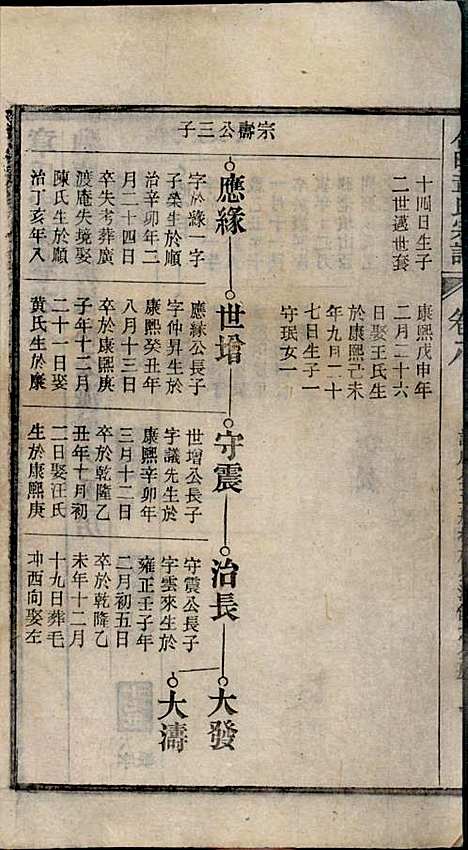 十四日生子
二世邁世套
康熙戊申年
二月二十六
日娶王氏生
於康熙己未
年九月二十
七日生子一
守珉女一
宗壽公三子
應緣
字於緣一字
子榮生於順
治辛卯年二
月二十四日
卒失考葬廣
渡庵失境娶
陳氏生於順
治丁亥年八
世增
應緣公長子
字仲昇生於
康熙癸丑年
八月十三日
卒於康熙庚
子年十二月
二十一日娶
黄氏生於康
守震
世增公長子
字議先生於
康熙辛卯年
三月十二日
卒於乾隆乙
丑年十月初
二日娶汪氏
生於康熙庚
治長
守震公長子
字雲來生於
雍正壬子年
二月初五日
卒於乾隆乙
未年十二月
十九日葬毛
坤酉向娶左
大發
大濤